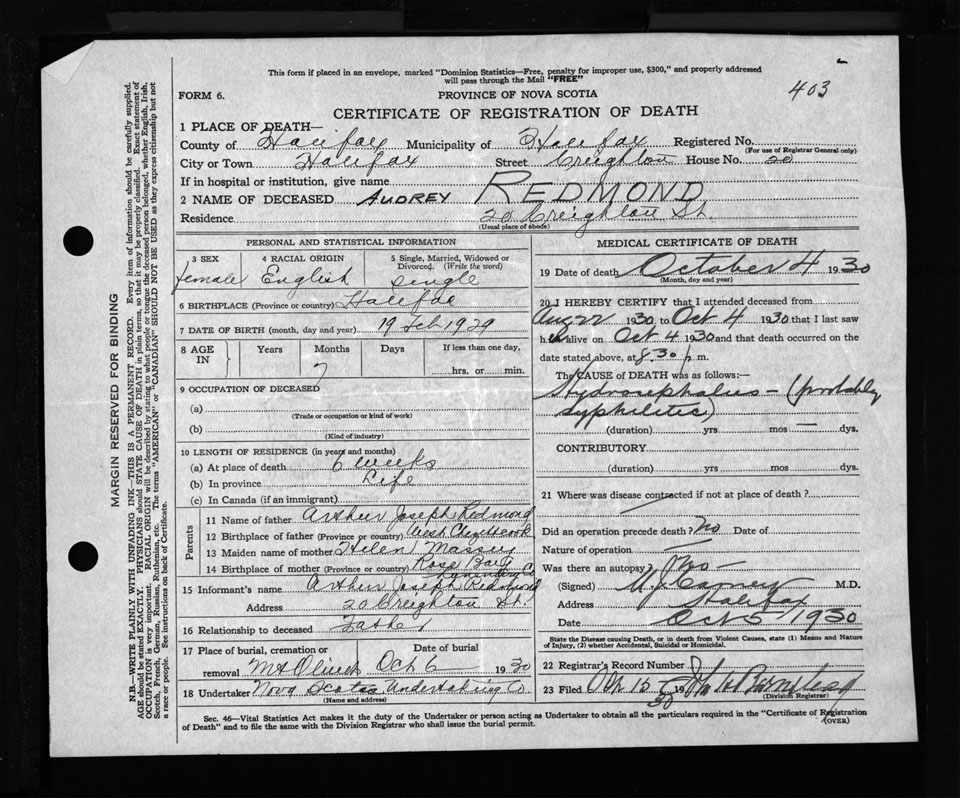 403
This form if placed in an envelope, marked "Dominion Statistics—Free, penalty for improper use, $300," and properly addressed
will pass through the Mail "FREE"
FORM 6.
PROVINCE OF NOVA SCOTIA
CERTIFICATE OF REGISTRATION OF DEATH
1 PLACE OF DEATH—
County of Halifax Municipality of Halifax Registered No.
(For use of Registrar General only)
City or Town Halifax Street Creighton House No. 20
If in hospital or institution, give name
2 NAME OF DECEASED AUDREY REDMOND
Residence 20 Creighton St.
(Usual place of abode)
PERSONAL AND STATISTICAL INFORMATION
3 SEX 4 RACIAL ORIGIN 5 Single, Married, Widowed or
Divorced. (Write the word)
female English single
6 BIRTHPLACE (Province or country) Halifax
7 DATE OF BIRTH (month, day and year) 19 Feb 1929
8 AGE IN Years Months Days If less than one day,
7 hrs. or min.
9 OCCUPATION OF DECEASED
(a)
(Trade or occupation or kind of work)
(b)
(Kind of industry)
10 LENGTH OF RESIDENCE (in years and months)
(a) At place of death 6 weeks
(b) In province Life
(c) In Canada (if an immigrant)
Parents
11 Name of father Arthur Joseph Redmond
12 Birthplace of father (Province or country) West Chezzetcook
13 Maiden name of mother Helen Massey
14 Birthplace of mother (Province or country) Rose Bay
Lunenburg Co
15 Informant's name Arthur Joseph Redmond
Address 20 Creighton St.
16 Relationship to deceased Father
17 Place of burial, cremation or Date of burial
removal Mt Olivet Oct 6 1930
18 Undertaker Nova Scotia Undertaking Co.
(Name and address)
MEDICAL CERTIFICATE OF DEATH
19 Date of death October 4 1930
(Month, day and year)
20 I HEREBY CERTIFY that I attended deceased from
Aug 22 1930 to Oct 4 1930 that I last saw
her alive on Oct 4 1930 and that death occurred on the
date stated above, at 8.30 p.m.
The CAUSE OF DEATH was as follows:—
Hydrocephalus — (probably
syphilitic)
(duration) yrs mos — dys.
CONTRIBUTORY
(duration) yrs mos dys.
21 Where was disease contracted if not at place of death?
Did an operation precede death? No Date of
Nature of operation —
Was there an autopsy? No —
(Signed) Carney M.D.
Address Halifax
Date Oct 5 1930
State the Disease causing Death, or in death from Violent Causes, state (1) Means and Nature
of Injury, (2) whether Accidental, Suicidal or Homicidal.
22 Registrar's Record Number
23 Filed Oct 15 1930
(Division Registrar)
Sec. 46—Vital Statistics Act makes it the duty of the Undertaker or person acting as Undertaker to obtain all the particulars required in the "Certificate of Registration
of Death" and to file the same with the Division Registrar who shall issue the burial permit.
(OVER)
MARGIN RESERVED FOR BINDING
N.B.—WRITE PLAINLY WITH UNFADING INK—THIS IS A PERMANENT RECORD. Every item of Information should be carefully supplied.
AGE should be stated EXACTLY. PHYSICIANS should STATE CAUSE OF DEATH in plain terms, so that it may be properly classified. Exact statement of
OCCUPATION is very important. RACIAL ORIGIN will be described by stating to what people or tongue the deceased person belonged, whether English, Irish,
Scotch, French, German, Russian, Ruthenian, etc. The terms "AMERICAN" or "CANADIAN" SHOULD NOT BE USED as they express citizenship but not
a race or people. See instructions on back of Certificate.